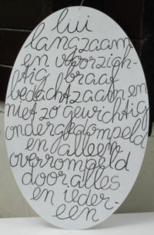 lui
langzaam
en voorzigh-
tig braaf
bedachtzaam en
niet zo gewichtig
ondergedompeld
en alleen
overrompeld
door alles
en ieder-
een